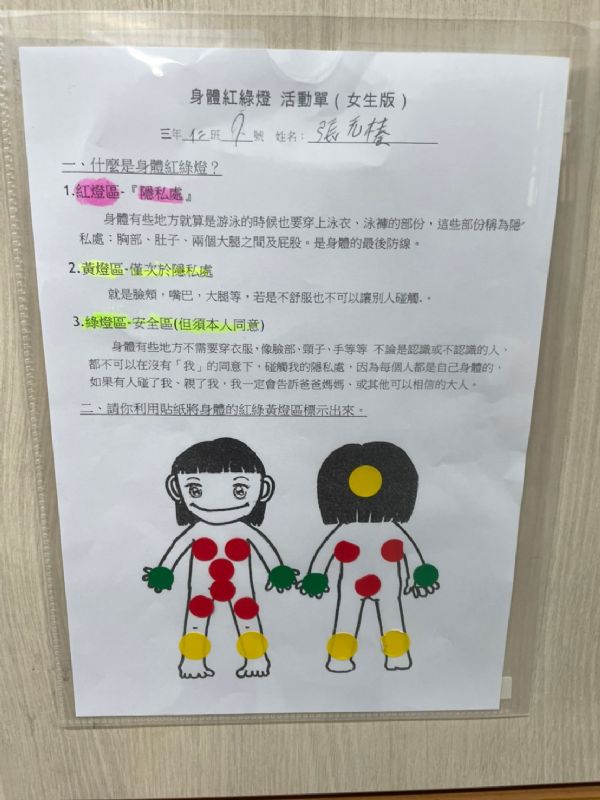 身體紅綠燈 活動單（女生版）
三年仁班9號 姓名：張尤榛
一、什麼是身體紅綠燈？
1.紅燈區-『隱私處』
身體有些地方就算是游泳的時候也要穿上泳衣、泳褲的部份，這些部份稱為隱
私處：胸部、肚子、兩個大腿之間及屁股。是身體的最後防線。
2.黃燈區-僅次於隱私處
就是臉頰，嘴巴，大腿等，若是不舒服也不可以讓別人碰觸.。
3.綠燈區-安全區(但須本人同意)
身體有些地方不需要穿衣服，像臉部、頸子、手等等 不論是認識或不認識的人，
都不可以在沒有「我」的同意下，碰觸我的隱私處，因為每個人都是自己身體的，
如果有人碰了我、親了我，我一定會告訴爸爸媽媽、或其他可以相信的大人。
二、請你利用貼紙將身體的紅綠黃燈區標示出來。